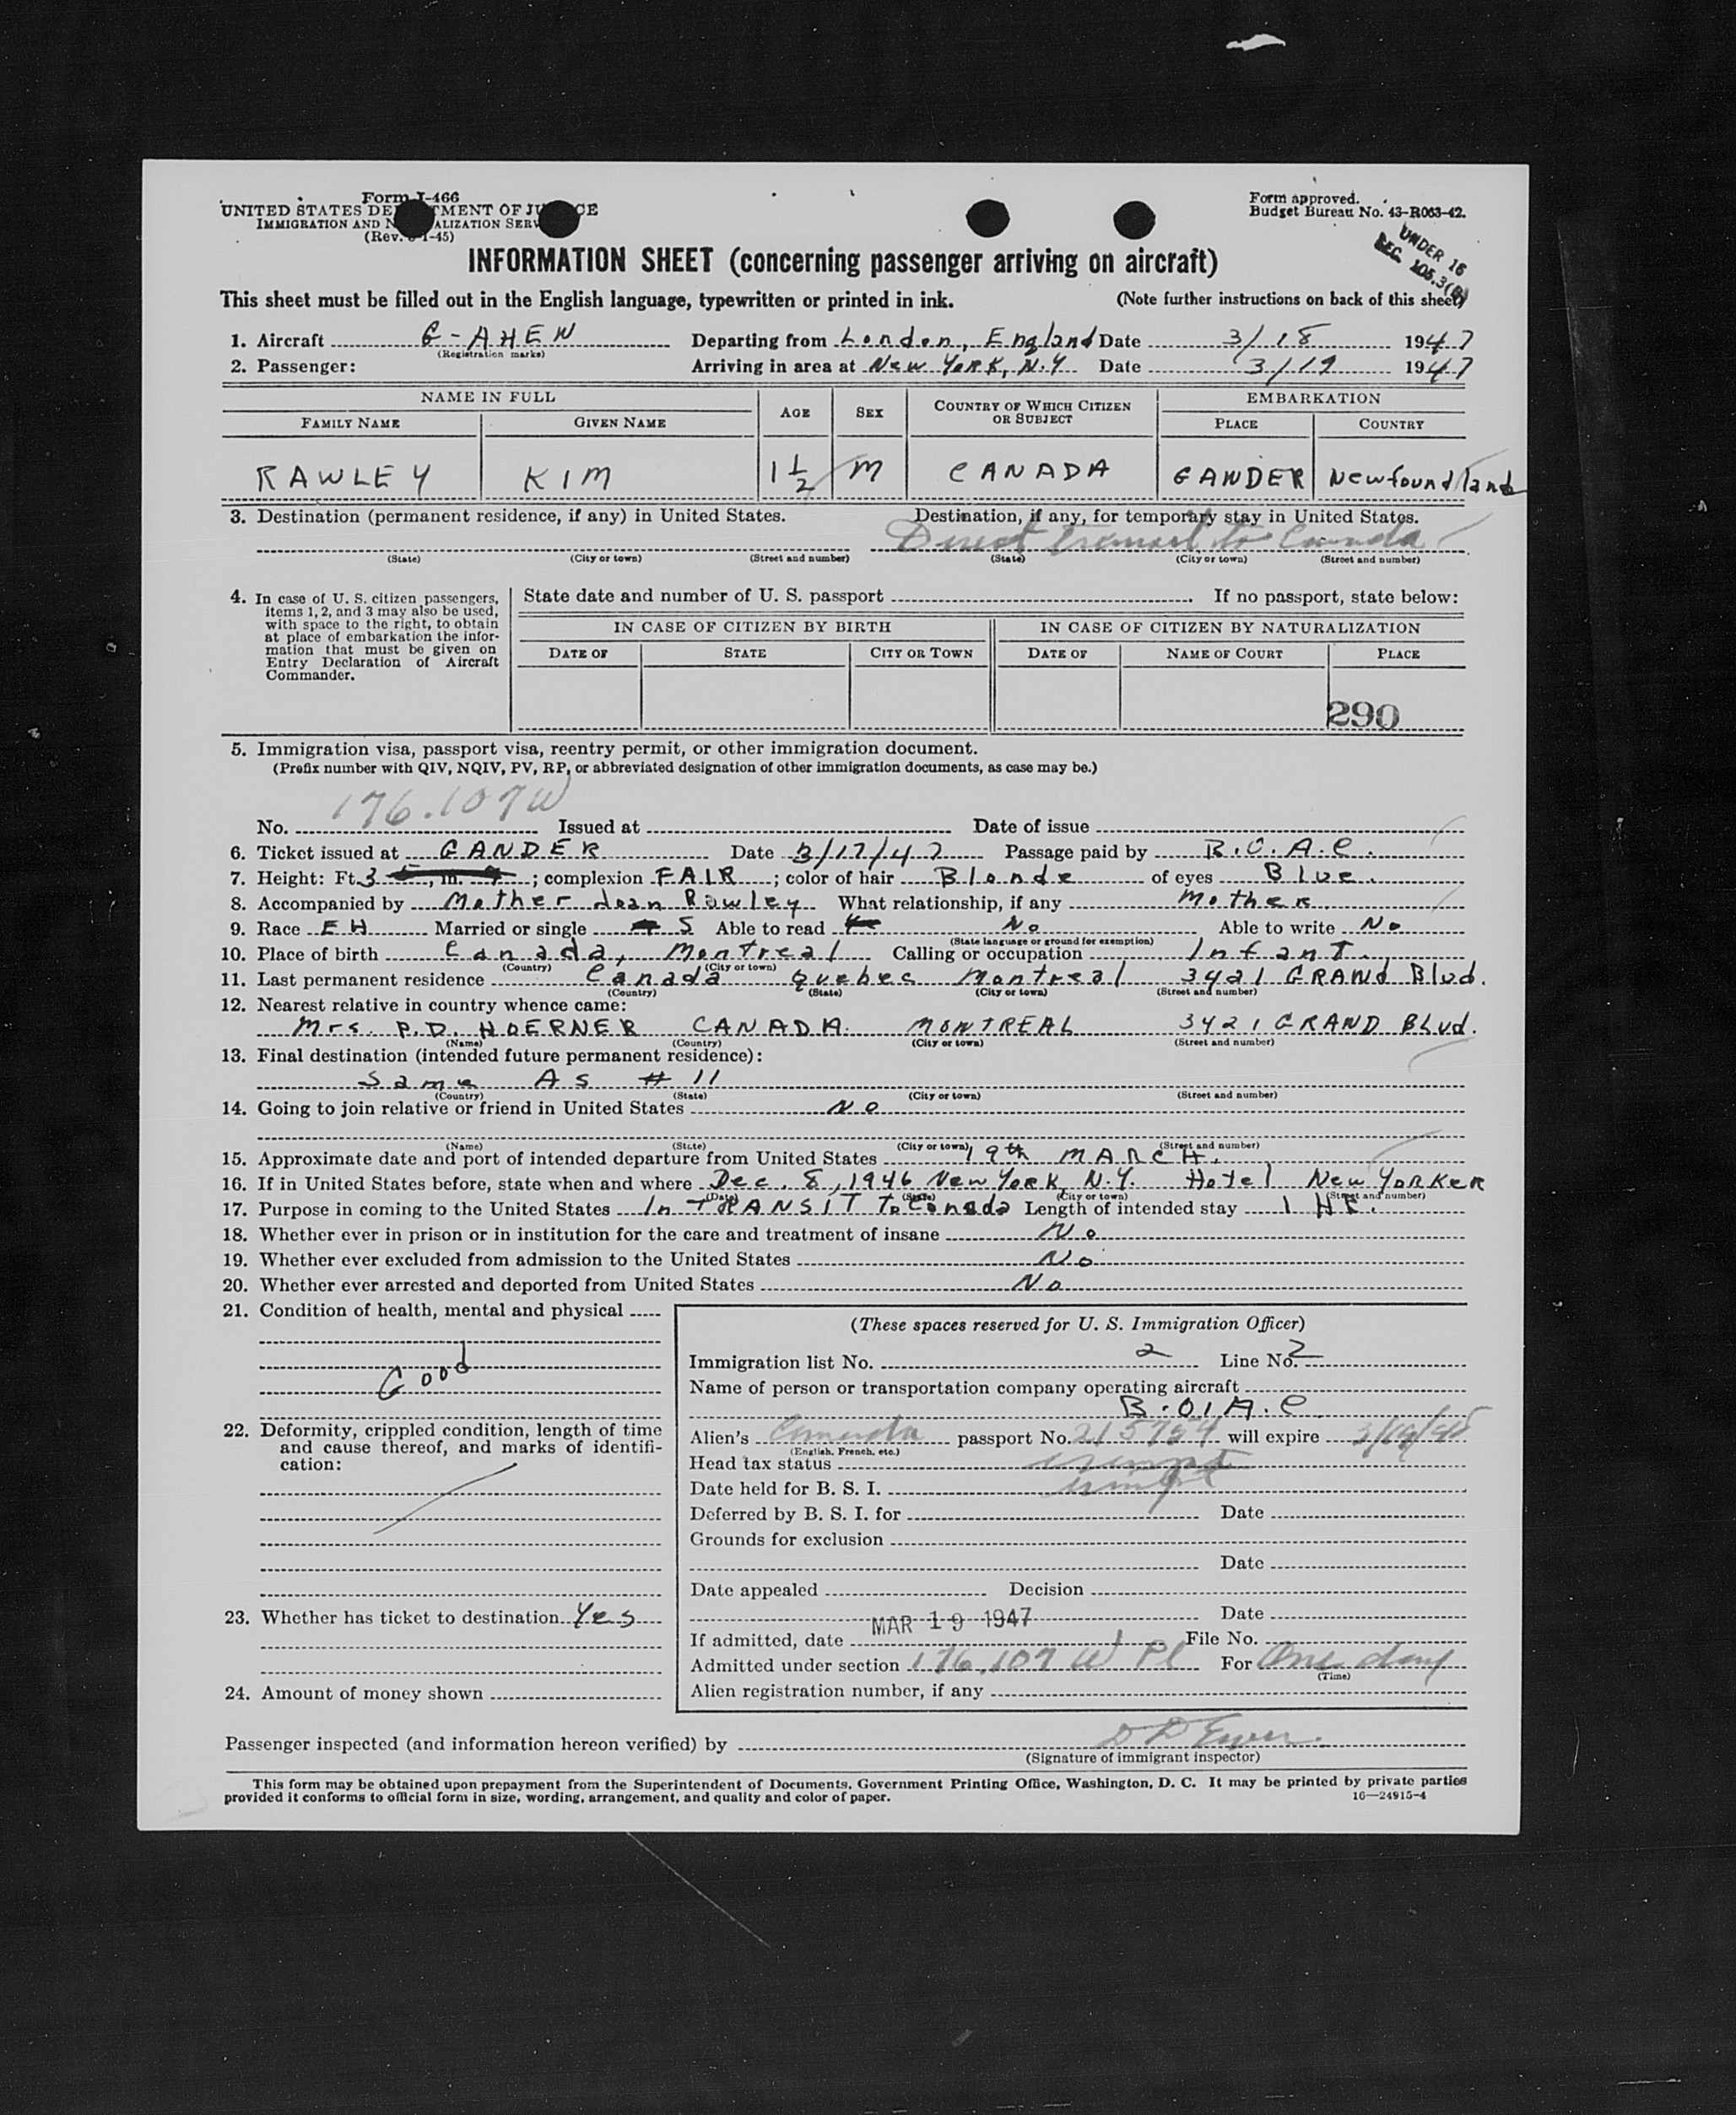 Form I-466
UNITED STATES DEPARTMENT OF JUSTICE
IMMIGRATION AND NATURALIZATION SERV
(Rev. -1-45)
Form approved.
Budget Bureau No. 43-R063-42.
UNDER 16
SEC. 105.3(
INFORMATION SHEET (concerning passenger arriving on aircraft)
This sheet must be filled out in the English language, typewritten or printed in ink. (Note further instructions on back of this sheet)
1. Aircraft G-AHEN Departing from London, England Date 3/18 1947
(Registration marks)
2. Passenger: Arriving in area at New York, N.Y. Date 3/19 1947
NAME IN FULL AGE SEX COUNTRY OF WHICH CITIZEN OR SUBJECT EMBARKATION
FAMILY NAME GIVEN NAME PLACE COUNTRY
RAWLEY KIM 1 1/2 M CANADA GANDER Newfoundland
3. Destination (permanent residence, if any) in United States. Destination, if any, for temporary stay in United States.
Direct transit to Canada
(State) (City or town) (Street and number) (State) (City or town) (Street and number)
4. In case of U. S. citizen passengers, items 1, 2, and 3 may also be used, with space to the right, to obtain at place of embarkation the information that must be given on Entry Declaration of Aircraft Commander.
State date and number of U. S. passport . If no passport, state below:
IN CASE OF CITIZEN BY BIRTH IN CASE OF CITIZEN BY NATURALIZATION
DATE OF STATE CITY OR TOWN DATE OF NAME OF COURT PLACE
290
5. Immigration visa, passport visa, reentry permit, or other immigration document.
(Prefix number with QIV, NQIV, PV, RP, or abbreviated designation of other immigration documents, as case may be.)
No. 176.107W Issued at Date of issue
6. Ticket issued at GANDER Date 3/17/47 Passage paid by B.O.A.C.
7. Height: Ft. 3, in. ; complexion FAIR; color of hair Blonde of eyes Blue.
8. Accompanied by Mother Joan Rawley What relationship, if any Mother
9. Race EH Married or single S Able to read No Able to write No
(State language or ground for exemption)
10. Place of birth Canada, Montreal Calling or occupation Infant.
(Country) (City or town)
11. Last permanent residence Canada Quebec Montreal 3421 GRAND Blvd.
(Country) (State) (City or town) (Street and number)
12. Nearest relative in country whence came:
Mrs. P.D. HOERNER CANADA MONTREAL 3421 GRAND BLvd.
(Name) (Country) (City or town) (Street and number)
13. Final destination (intended future permanent residence):
Same As # 11
(Country) (State) (City or town) (Street and number)
14. Going to join relative or friend in United States No
(Name) (State) (City or town) (Street and number)
15. Approximate date and port of intended departure from United States 19th MARCH.
16. If in United States before, state when and where Dec. 8, 1946 New York, N.Y. Hotel New Yorker
(Date) (State) (City or town) (Street and number)
17. Purpose in coming to the United States In TRANSIT To Canada Length of intended stay 1 HR.
18. Whether ever in prison or in institution for the care and treatment of insane No
19. Whether ever excluded from admission to the United States No
20. Whether ever arrested and deported from United States No
21. Condition of health, mental and physical
Good
22. Deformity, crippled condition, length of time and cause thereof, and marks of identification:
23. Whether has ticket to destination Yes
24. Amount of money shown
(These spaces reserved for U. S. Immigration Officer)
Immigration list No. 2 Line No. 2
Name of person or transportation company operating aircraft
B.O.A.C
Alien's Canada passport No. 215754 will expire
(English, French, etc.)
Head tax status exempt
Date held for B. S. I.
Deferred by B. S. I. for Date
Grounds for exclusion
Date
Date appealed Decision
Date
If admitted, date MAR 19 1947 File No.
Admitted under section 176.107 W Pl For One day
(Time)
Alien registration number, if any
Passenger inspected (and information hereon verified) by
(Signature of immigrant inspector)
This form may be obtained upon prepayment from the Superintendent of Documents, Government Printing Office, Washington, D. C. It may be printed by private parties
provided it conforms to official form in size, wording, arrangement, and quality and color of paper. 16—24915-4